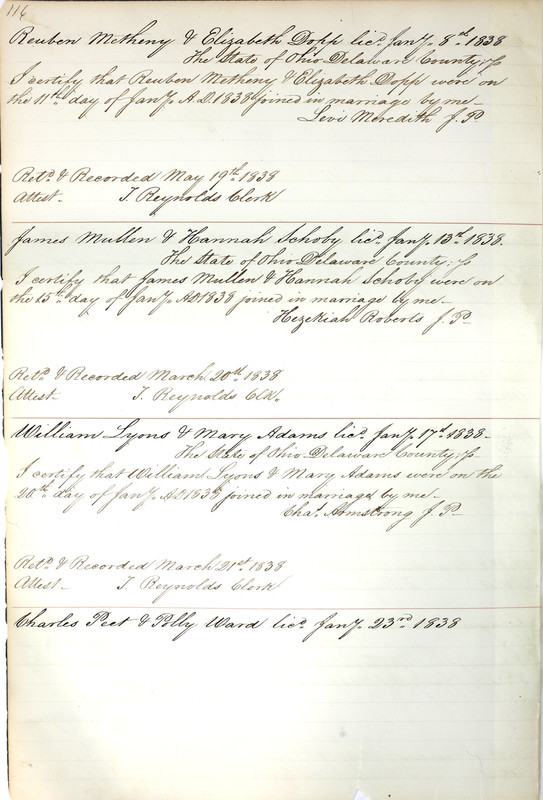 116
Reuben Metheny & Elizabeth Dopp licd. Jany. 8th. 1838
The State of Ohio Delaware County, Js
I certify that Reuben Metheny & Elizabeth Dopp were on
the 11th. day of Jany. A.D. 1838 joined in marriage by me—
Levi Meredith J. P.
Retd. & Recorded May 19th. 1838
Attest— T. Reynolds Clerk
James Mullen & Hannah Schoby licd. Jany. 13th. 1838.
The State of Ohio Delaware County, Js
I certify that James Mullen & Hannah Schoby were on
the 25th. day of Jany. AD 1838 joined in marriage by me—
Hezekiah Roberts J. P—
Retd. & Recorded March 20th. 1838
Attest— T. Reynolds Clk.
William Lyons & Mary Adams licd. Jany. 17th. 1838—
The State of Ohio Delaware County, Js
I certify that William Lyons & Mary Adams were on the
20th. day of Jany. AD 1838 joined in marriage by me—
Chas. Armstrong J. P—
Retd. & Recorded March 21st. 1838
Attest— T. Reynolds Clerk
Charles Peet & Polly Ward licd. Jany. 23rd. 1838